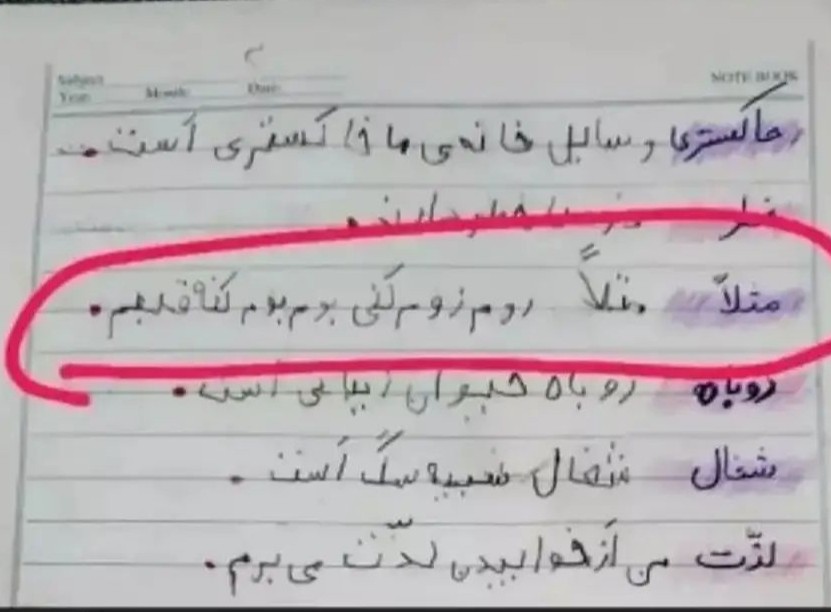 Subject:
Year: Month: Date:
NOTE BOOK
خاکستری وسایل خانه‌ی ما خاکستری است.
مثلاً مثلاً روم زوم کنی بوم بوم کنه قلبم.
روباه روباه حیوان زیبایی است.
شغال شغال شبیه سگ است.
لذّت من از خوابیدن لذّت می برم.